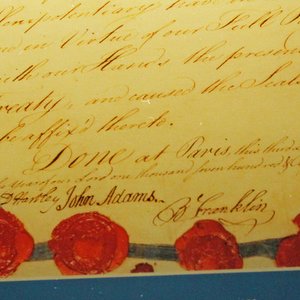 in Virtue of our Full P
with our Hands the presen
Treaty, and caused the Seals
be affix'd thereto.
Done at Paris, this third d
year of our Lord one thousand seven hundred &
D Hartley John Adams. B Franklin